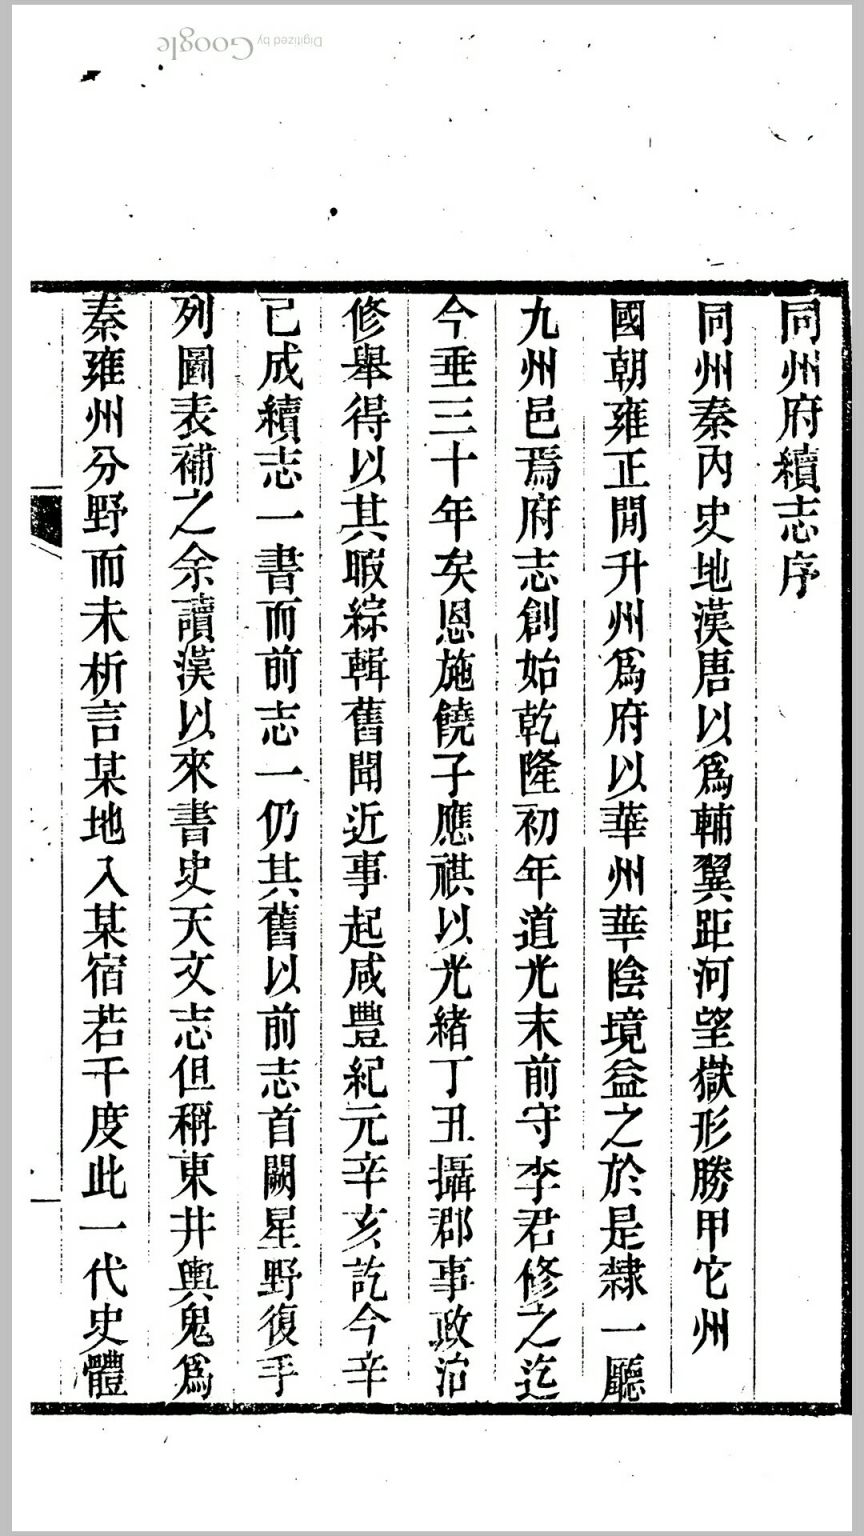 同州府續志序
同州秦內史地漢唐以爲輔翼距河望嶽形勝甲它州
國朝雍正閒升州爲府以華州華陰境益之於是隸一廳
九州邑焉府志創始乾隆初年道光末前守李君修之迄
今垂三十年矣恩施饒子應祺以光緒丁丑攝郡事政治
修舉得以其暇綜輯舊聞近事起咸豐紀元辛亥訖今辛
巳成續志一書而前志一仍其舊以前志首闕星野復手
列圖表補之余讀漢以來書史天文志但稱東井輿鬼爲
秦雍州分野而未析言某地入某宿若干度此一代史體
Digitized by Google